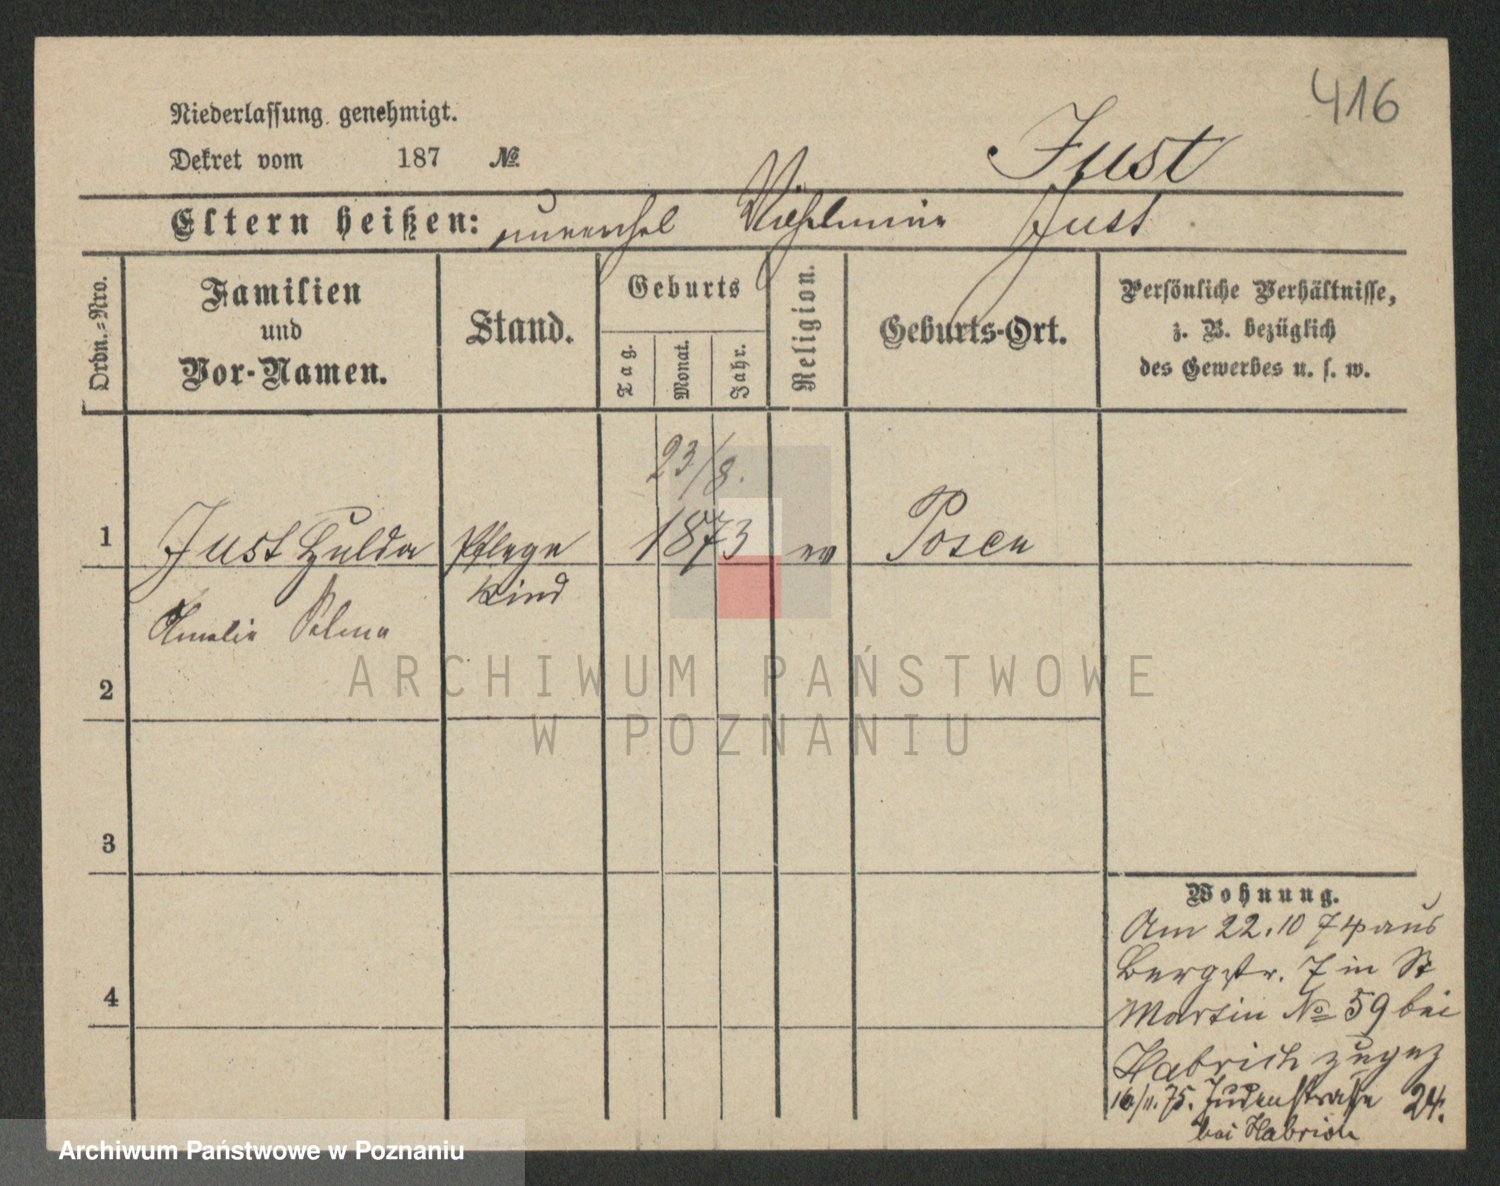 416
Niederlassung genehmigt.
Dekret vom 187 №
Just
Eltern heißen: unverehel Wilhelmine Just
Ordn.=Nro.
Familien und Vor-Namen.
Stand.
Geburts
Tag.
Monat.
Jahr.
Religion.
Geburts-Ort.
Persönliche Verhältnisse,
z. B. bezüglich
des Gewerbes u. s. w.
23/8.
1 Just Hulda Pflege 1873 ev Posen
Kind
Amalie Selma
2
3
4
Wohnung.
Am 22.10 74 aus
Bergstr. 7 in St
Martin № 59 bei
Habrich zugez
16/11. 75. Judenstraße 24.
bei Habrich
ARCHIWUM PAŃSTWOWE
W POZNANIU
Archiwum Państwowe w Poznaniu